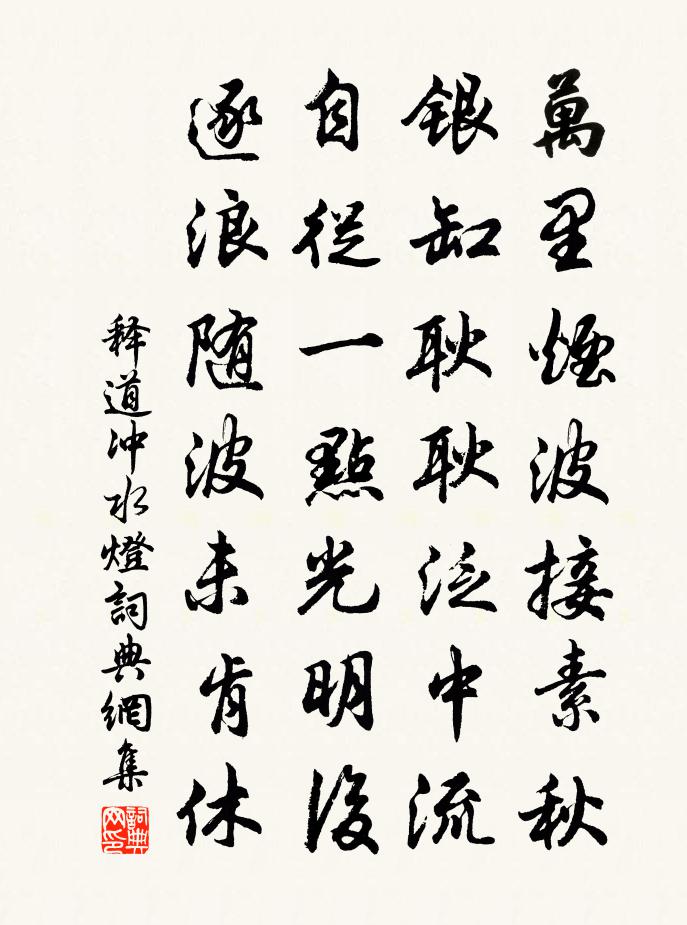 萬里煙波接素秋
銀缸耿耿泛中流
自從一點光明後
逐浪随波未肯休
释道冲水燈詞典網集
詞典网印